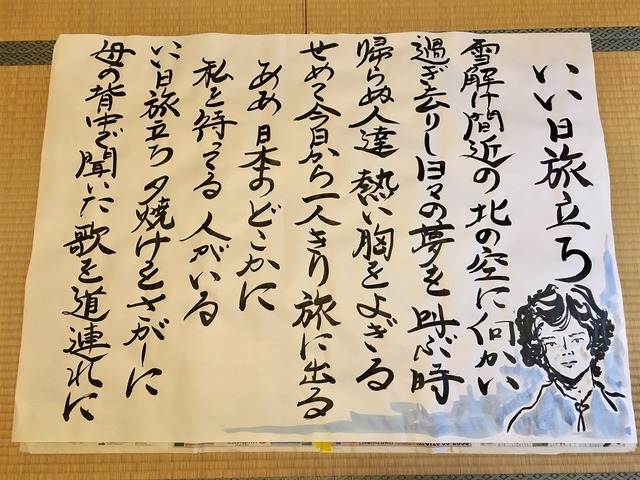 いい日旅立ち
雪解け間近の 北の空に 向かい
過ぎ去りし日々の夢を 叫ぶ時
帰らぬ人達 熱い胸をよぎる
せめて今日から一人きり 旅に出る
ああ 日本の どこかに
私を待ってる 人がいる
いい日旅立ち 夕焼けをさがしに
母の背中で聞いた 歌を道連れに